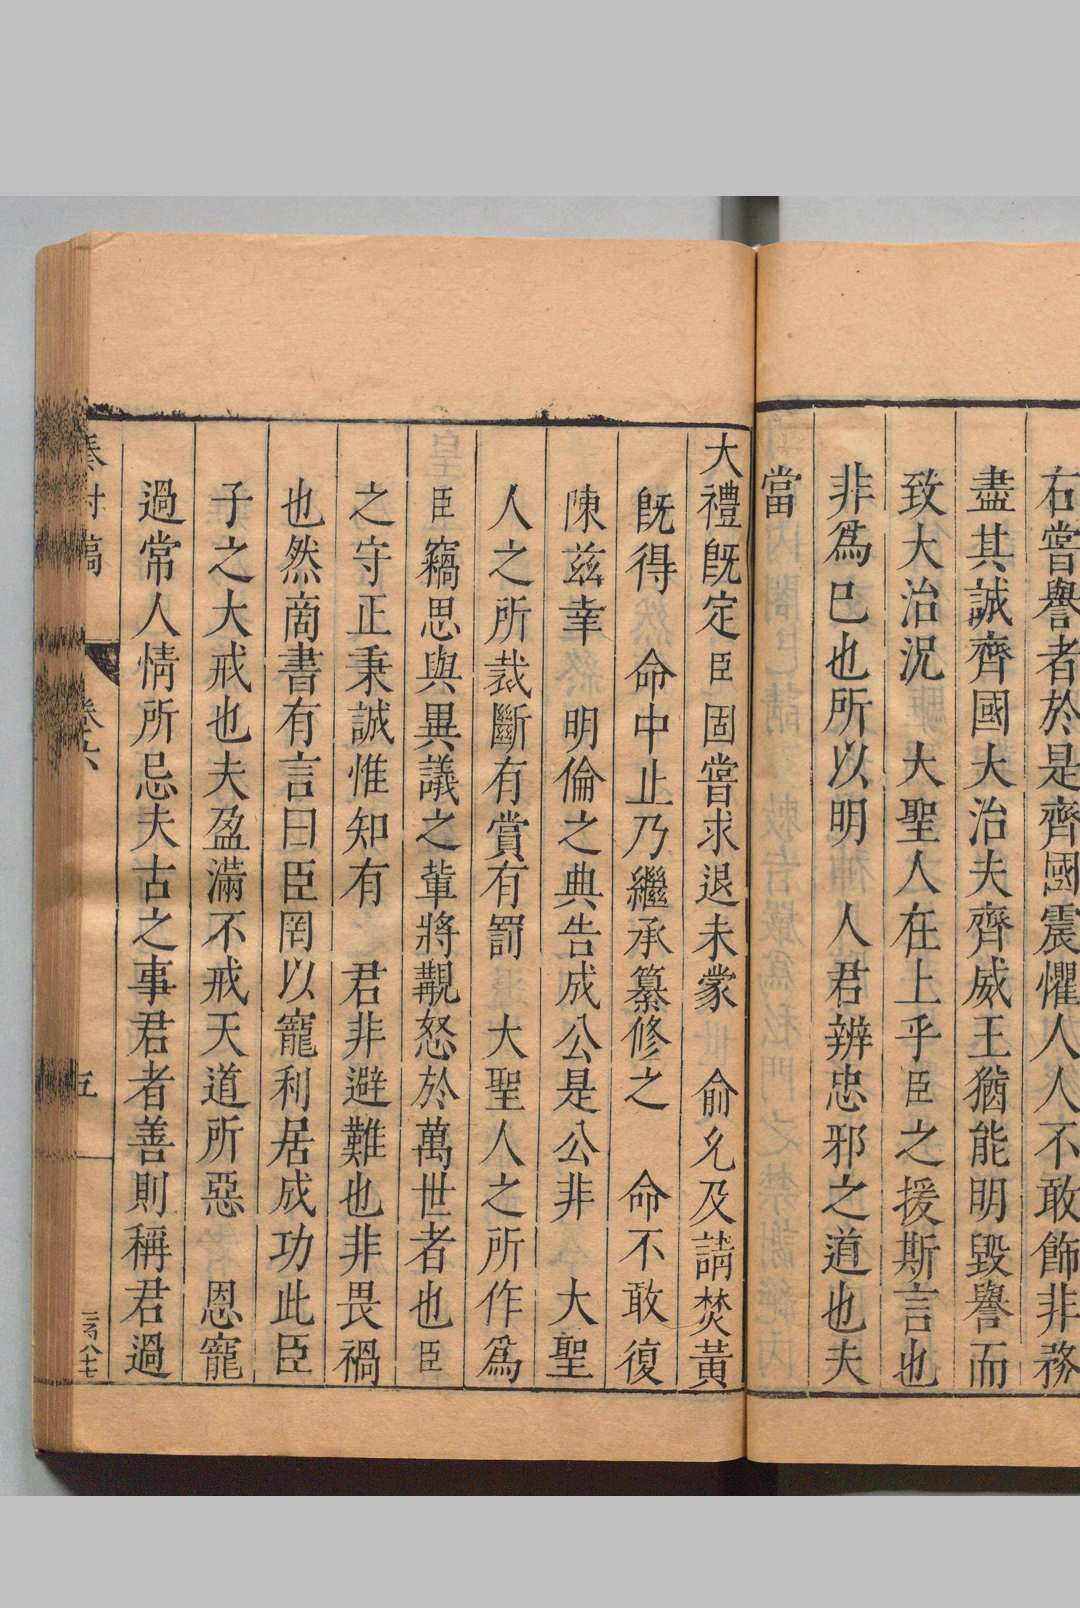 右嘗譽者於是齊國震懼人人不敢飾非務
盡其誠齊國大治夫齊威王猶能明毀譽而
致大治況 大聖人在上乎臣之援斯言也
非爲已也所以明 人君辨忠邪之道也夫
當
大禮旣定臣固嘗求退未蒙 俞允及請焚黃
旣得 命中止乃繼承纂修之 命不敢復
陳茲幸 明倫之典告成公是公非 大聖
人之所裁斷有賞有罰 大聖人之所作爲
臣竊思與異議之輩將覯怒於萬世者也臣
之守正秉誠惟知有 君非避難也非畏禍
也然商書有言曰臣罔以寵利居成功此臣
子之大戒也夫盈滿不戒天道所惡 恩寵
過常人情所忌夫古之事君者善則稱君過
奏對稿
卷六
五